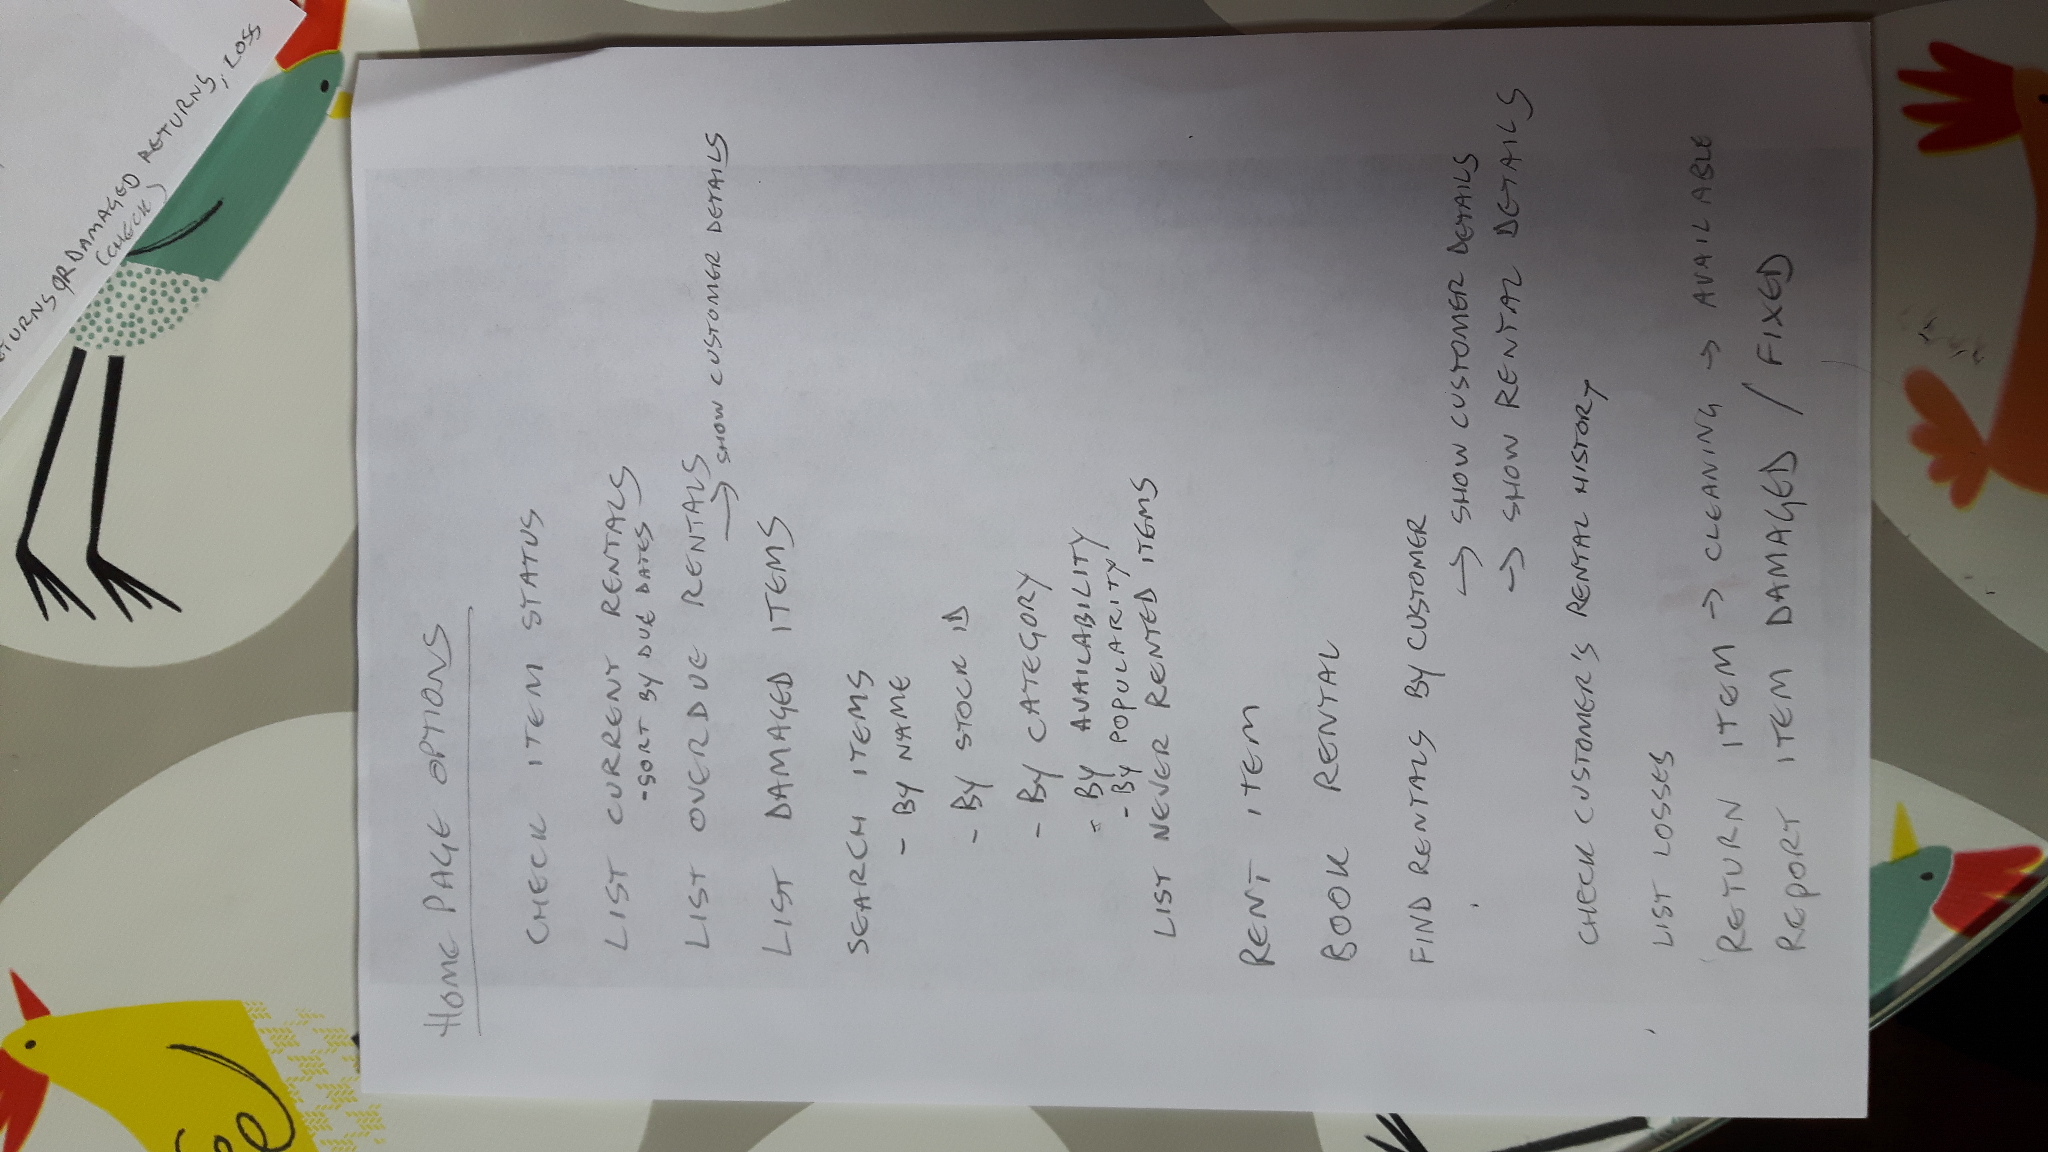 TURNS OR DAMAGED RETURNS, LOSS
(CHECK)
HOME PAGE OPTIONS
CHECK ITEM STATUS
LIST CURRENT RENTALS
- SORT BY DUE DATES
LIST OVERDUE RENTALS
→ SHOW CUSTOMER DETAILS
LIST DAMAGED ITEMS
SEARCH ITEMS
- BY NAME
- BY STOCK ID
- BY CATEGORY
- BY AVAILABILITY
- BY POPULARITY
LIST NEVER RENTED ITEMS
RENT ITEM
BOOK RENTAL
FIND RENTALS BY CUSTOMER
→ SHOW CUSTOMER DETAILS
→ SHOW RENTAL DETAILS
CHECK CUSTOMER'S RENTAL HISTORY
LIST LOSSES
RETURN ITEM → CLEANING → AVAILABLE
REPORT ITEM DAMAGED / FIXED